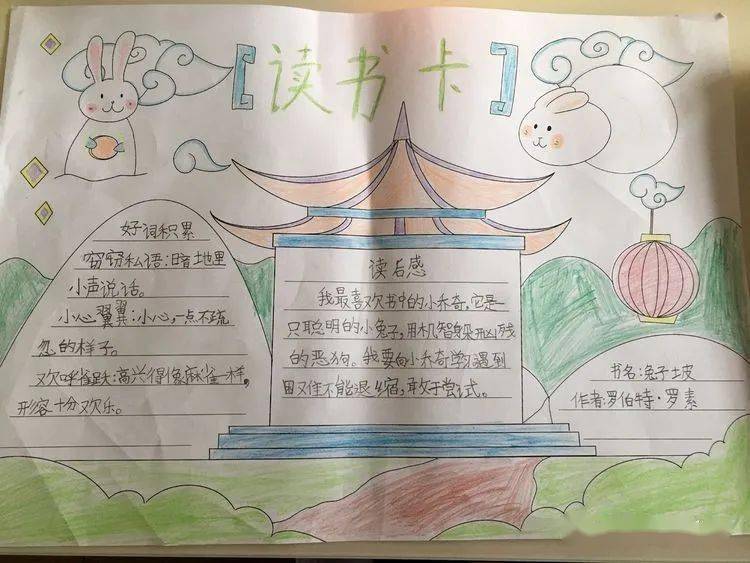 【读书卡】
好词积累
窃窃私语:暗地里
小声说话。
小心翼翼:小心,一点不疏
忽的样子。
欢呼雀跃:高兴得像麻雀一样,
形容十分欢乐。
读后感
我最喜欢书中的小乔奇,它是
只聪明的小兔子,用机智躲凶残
的恶狗。我要向小乔奇学遇到
困难不能退缩,敢于尝试。
书名:兔子坡
作者:罗伯特·罗素